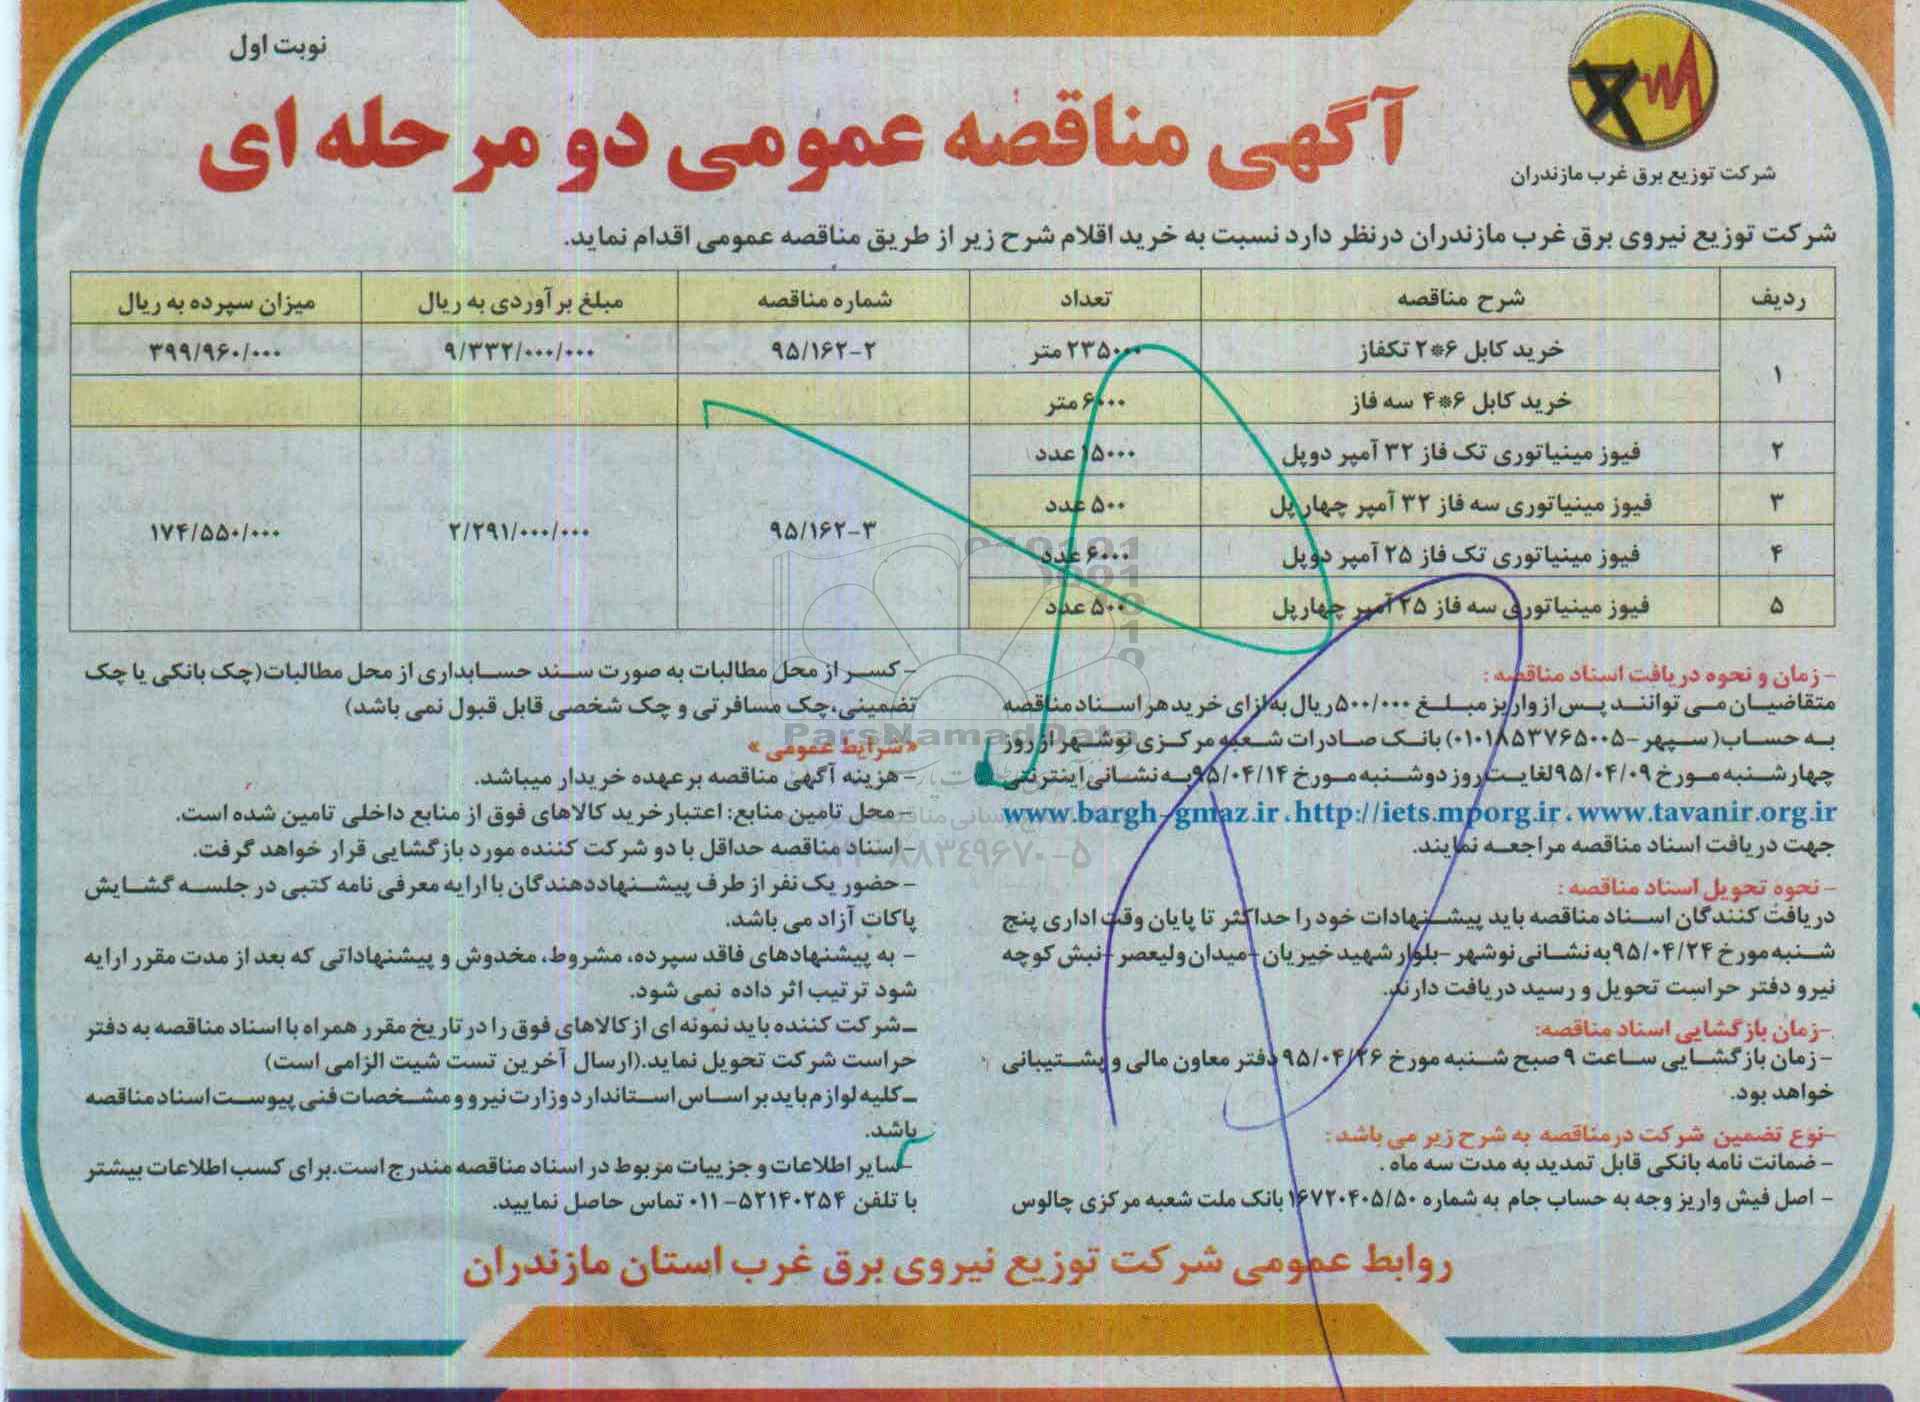 نوبت اول
آگهی مناقصه عمومی دو مرحله ای
شرکت توزیع برق غرب مازندران
شرکت توزیع نیروی برق غرب مازندران درنظر دارد نسبت به خرید اقلام شرح زیر از طریق مناقصه عمومی اقدام نماید.
ردیف شرح مناقصه تعداد شماره مناقصه مبلغ برآوردی به ریال میزان سپرده به ریال
۱ خرید کابل ۶*۲ تکفاز ۲۳۵۰۰۰ متر ۹۵/۱۶۲-۲ ۹/۳۳۲/۰۰۰/۰۰۰ ۳۹۹/۹۶۰/۰۰۰
خرید کابل ۶*۴ سه فاز ۶۰۰۰ متر
۲ فیوز مینیاتوری تک فاز ۳۲ آمپر دوپل ۱۵۰۰۰ عدد
۳ فیوز مینیاتوری سه فاز ۳۲ آمپر چهار پل ۵۰۰ عدد
۹۵/۱۶۲-۳ ۲/۲۹۱/۰۰۰/۰۰۰ ۱۷۴/۵۵۰/۰۰۰
۴ فیوز مینیاتوری تک فاز ۲۵ آمپر دوپل ۶۰۰۰ عدد
۵ فیوز مینیاتوری سه فاز ۲۵ آمپر چهارپل ۵۰۰ عدد
- زمان و نحوه دریافت اسناد مناقصه :
متقاضیان می توانند پس از واریز مبلغ ۵۰۰/۰۰۰ ریال به ازای خرید هر اسناد مناقصه
به حساب( سپهر -۰۱۰۱۸۵۳۷۶۵۰۰۵) بانک صادرات شعبه مرکزی نوشهر از روز
چهارشنبه مورخ ۹۵/۰۴/۰۹ لغایت روز دوشنبه مورخ ۹۵/۰۴/۱۴ به نشانی اینترنتی
www.bargh-gmaz.ir ، http://iets.mporg.ir ، www.tavanir.org.ir
جهت دریافت اسناد مناقصه مراجعه نمایند.
- نحوه تحویل اسناد مناقصه :
دریافت کنندگان اسناد مناقصه باید پیشنهادات خود را حداکثر تا پایان وقت اداری پنج
شنبه مورخ ۹۵/۰۴/۲۴ به نشانی نوشهر -بلوار شهید خیریان -میدان ولیعصر -نبش کوچه
نیرو دفتر حراست تحویل و رسید دریافت دارند.
-زمان بازگشایی اسناد مناقصه:
- زمان بازگشایی ساعت ۹ صبح شنبه مورخ ۹۵/۰۴/۲۶ دفتر معاون مالی و پشتیبانی
خواهد بود.
-نوع تضمین شرکت درمناقصه به شرح زیر می باشد :
- ضمانت نامه بانکی قابل تمدید به مدت سه ماه .
- اصل فیش واریز وجه به حساب جام به شماره ۱۶۷۲۰۴۰۵/۵۰ بانک ملت شعبه مرکزی چالوس
- کسر از محل مطالبات به صورت سند حسابداری از محل مطالبات(چک بانکی یا چک
تضمینی،چک مسافرتی و چک شخصی قابل قبول نمی باشد)
«شرایط عمومی »
- هزینه آگهی مناقصه برعهده خریدار میباشد.
- محل تامین منابع: اعتبار خرید کالاهای فوق از منابع داخلی تامین شده است.
- اسناد مناقصه حداقل با دو شرکت کننده مورد بازگشایی قرار خواهد گرفت.
- حضور یک نفر از طرف پیشنهاددهندگان با ارایه معرفی نامه کتبی در جلسه گشایش
پاکات آزاد می باشد.
- به پیشنهادهای فاقد سپرده، مشروط، مخدوش و پیشنهاداتی که بعد از مدت مقرر ارایه
شود ترتیب اثر داده نمی شود.
-شرکت کننده باید نمونه ای از کالاهای فوق را در تاریخ مقرر همراه با اسناد مناقصه به دفتر
حراست شرکت تحویل نماید.(ارسال آخرین تست شیت الزامی است)
-کلیه لوازم باید بر اساس استاندارد وزارت نیرو و مشخصات فنی پیوست اسناد مناقصه
باشد.
-سایر اطلاعات و جزییات مربوط در اسناد مناقصه مندرج است.برای کسب اطلاعات بیشتر
با تلفن ۵۲۱۴۰۲۵۴-۰۱۱ تماس حاصل نمایید.
روابط عمومی شرکت توزیع نیروی برق غرب استان مازندران
ParsNamadData